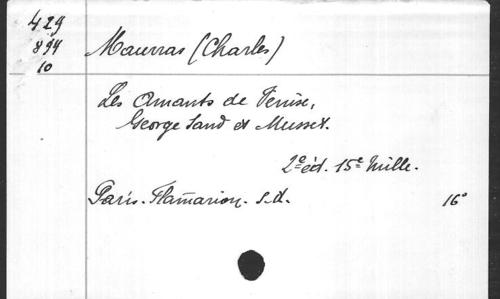 429
894
10
Maurras (Charles)
Les Amants de Venise,
George Sand et Musset.
2e éd. 15e Mille.
Paris. Flammarion. s.d.
16°